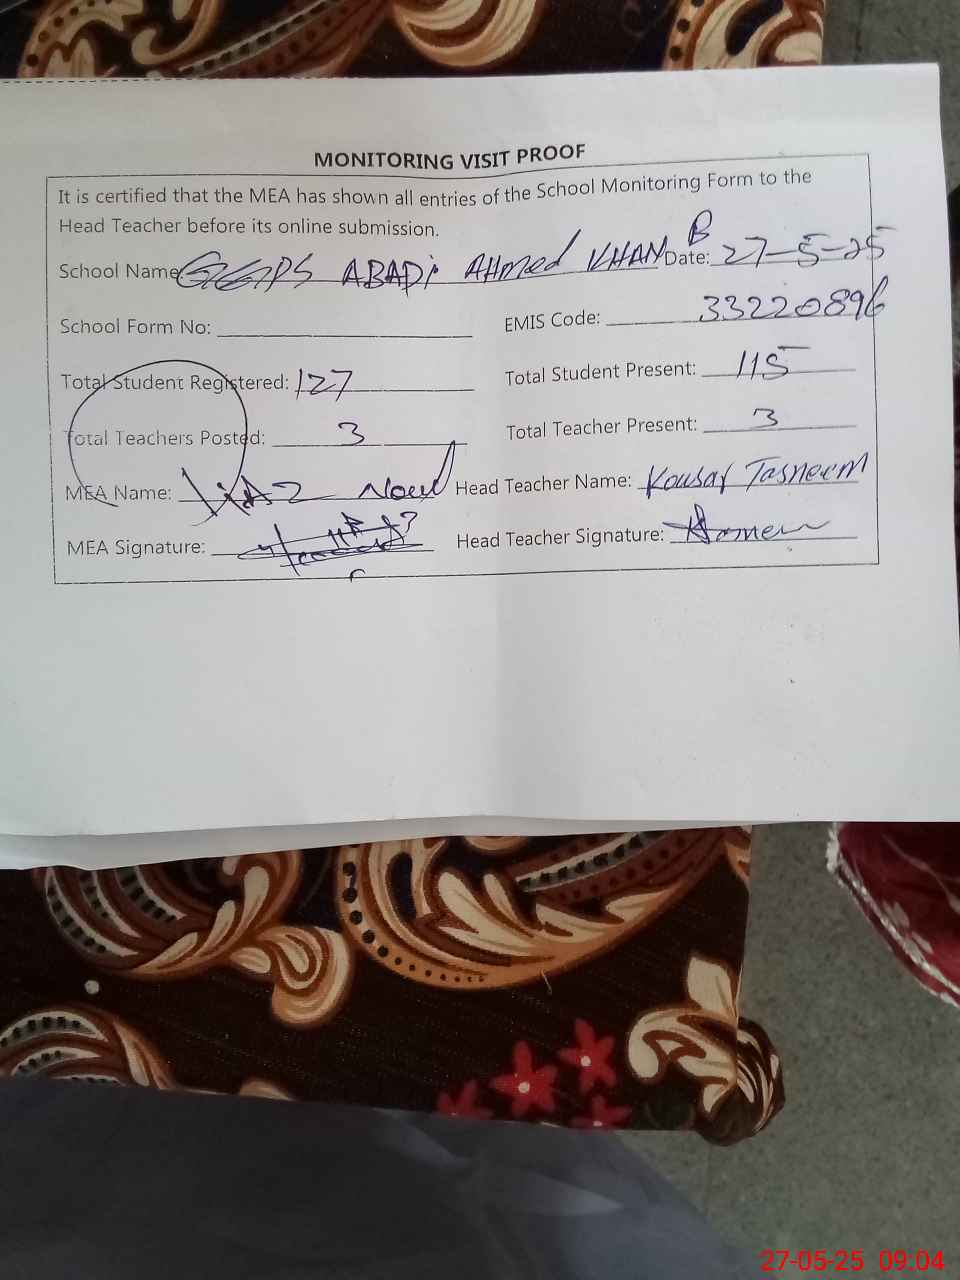 MONITORING VISIT PROOF
It is certified that the MEA has shown all entries of the School Monitoring Form to the
Head Teacher before its online submission.
School Name: GGPS ABADI AHmed KHAN B Date: 27-5-25
School Form No: EMIS Code: 33220896
Total Student Registered: 127 Total Student Present: 115
Total Teachers Posted: 3 Total Teacher Present: 3
MEA Name: Head Teacher Name: Kousar Tasneem
MEA Signature: Head Teacher Signature:
27-05-25 09:04